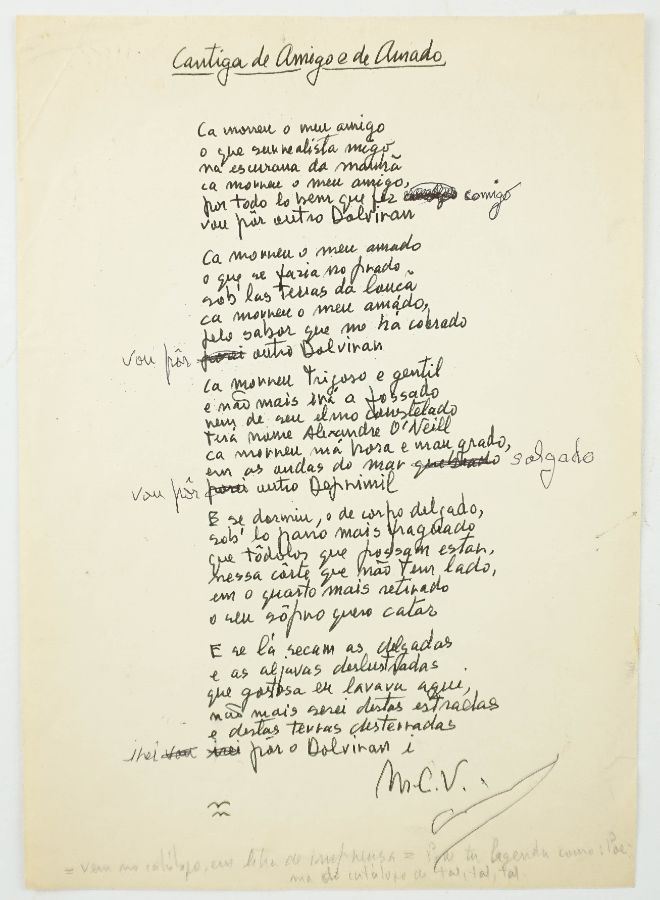 Cantiga de Amigo e de Amado
Ca morreu o meu amigo
o que surrealista migo
na escurana da manhã
ca morreu o meu amigo,
por todo lo bem que fez comigo
vou pôr outro Dolviran
Ca morreu o meu amado
o que se fazia no prado
sob' las terras da louçã
ca morreu o meu amado,
pelo sabor que mo há cobrado
vou pôr porei outro Dolviran
Ca morreu trigoso e gentil
e não mais irá a fossado
nem de seu elmo constelado
terá nome Alexandre O'Neill
ca morreu má hora e mau grado,
em as ondas do mar quebrado salgado
vou pôr porei outro Deprimil
E se dormiu, o de corpo delgado,
sob' lo pano mais fraguado
que tôdolos que possam estar,
nessa côrte que não tem lado,
em o quarto mais retirado
o seu sôpro quero catar
E se lá secam as delgadas
e as aljavas deslustradas
que gostosa eu lavava aqui,
não mais serei destas estradas
e destas terras desterradas
irei vou irei pôr o Dolviran i
M.C.V.
= vem no catálogo, em letra de imprensa = Pôr tu legenda como: Poe-
ma do catálogo de tal, tal, tal.